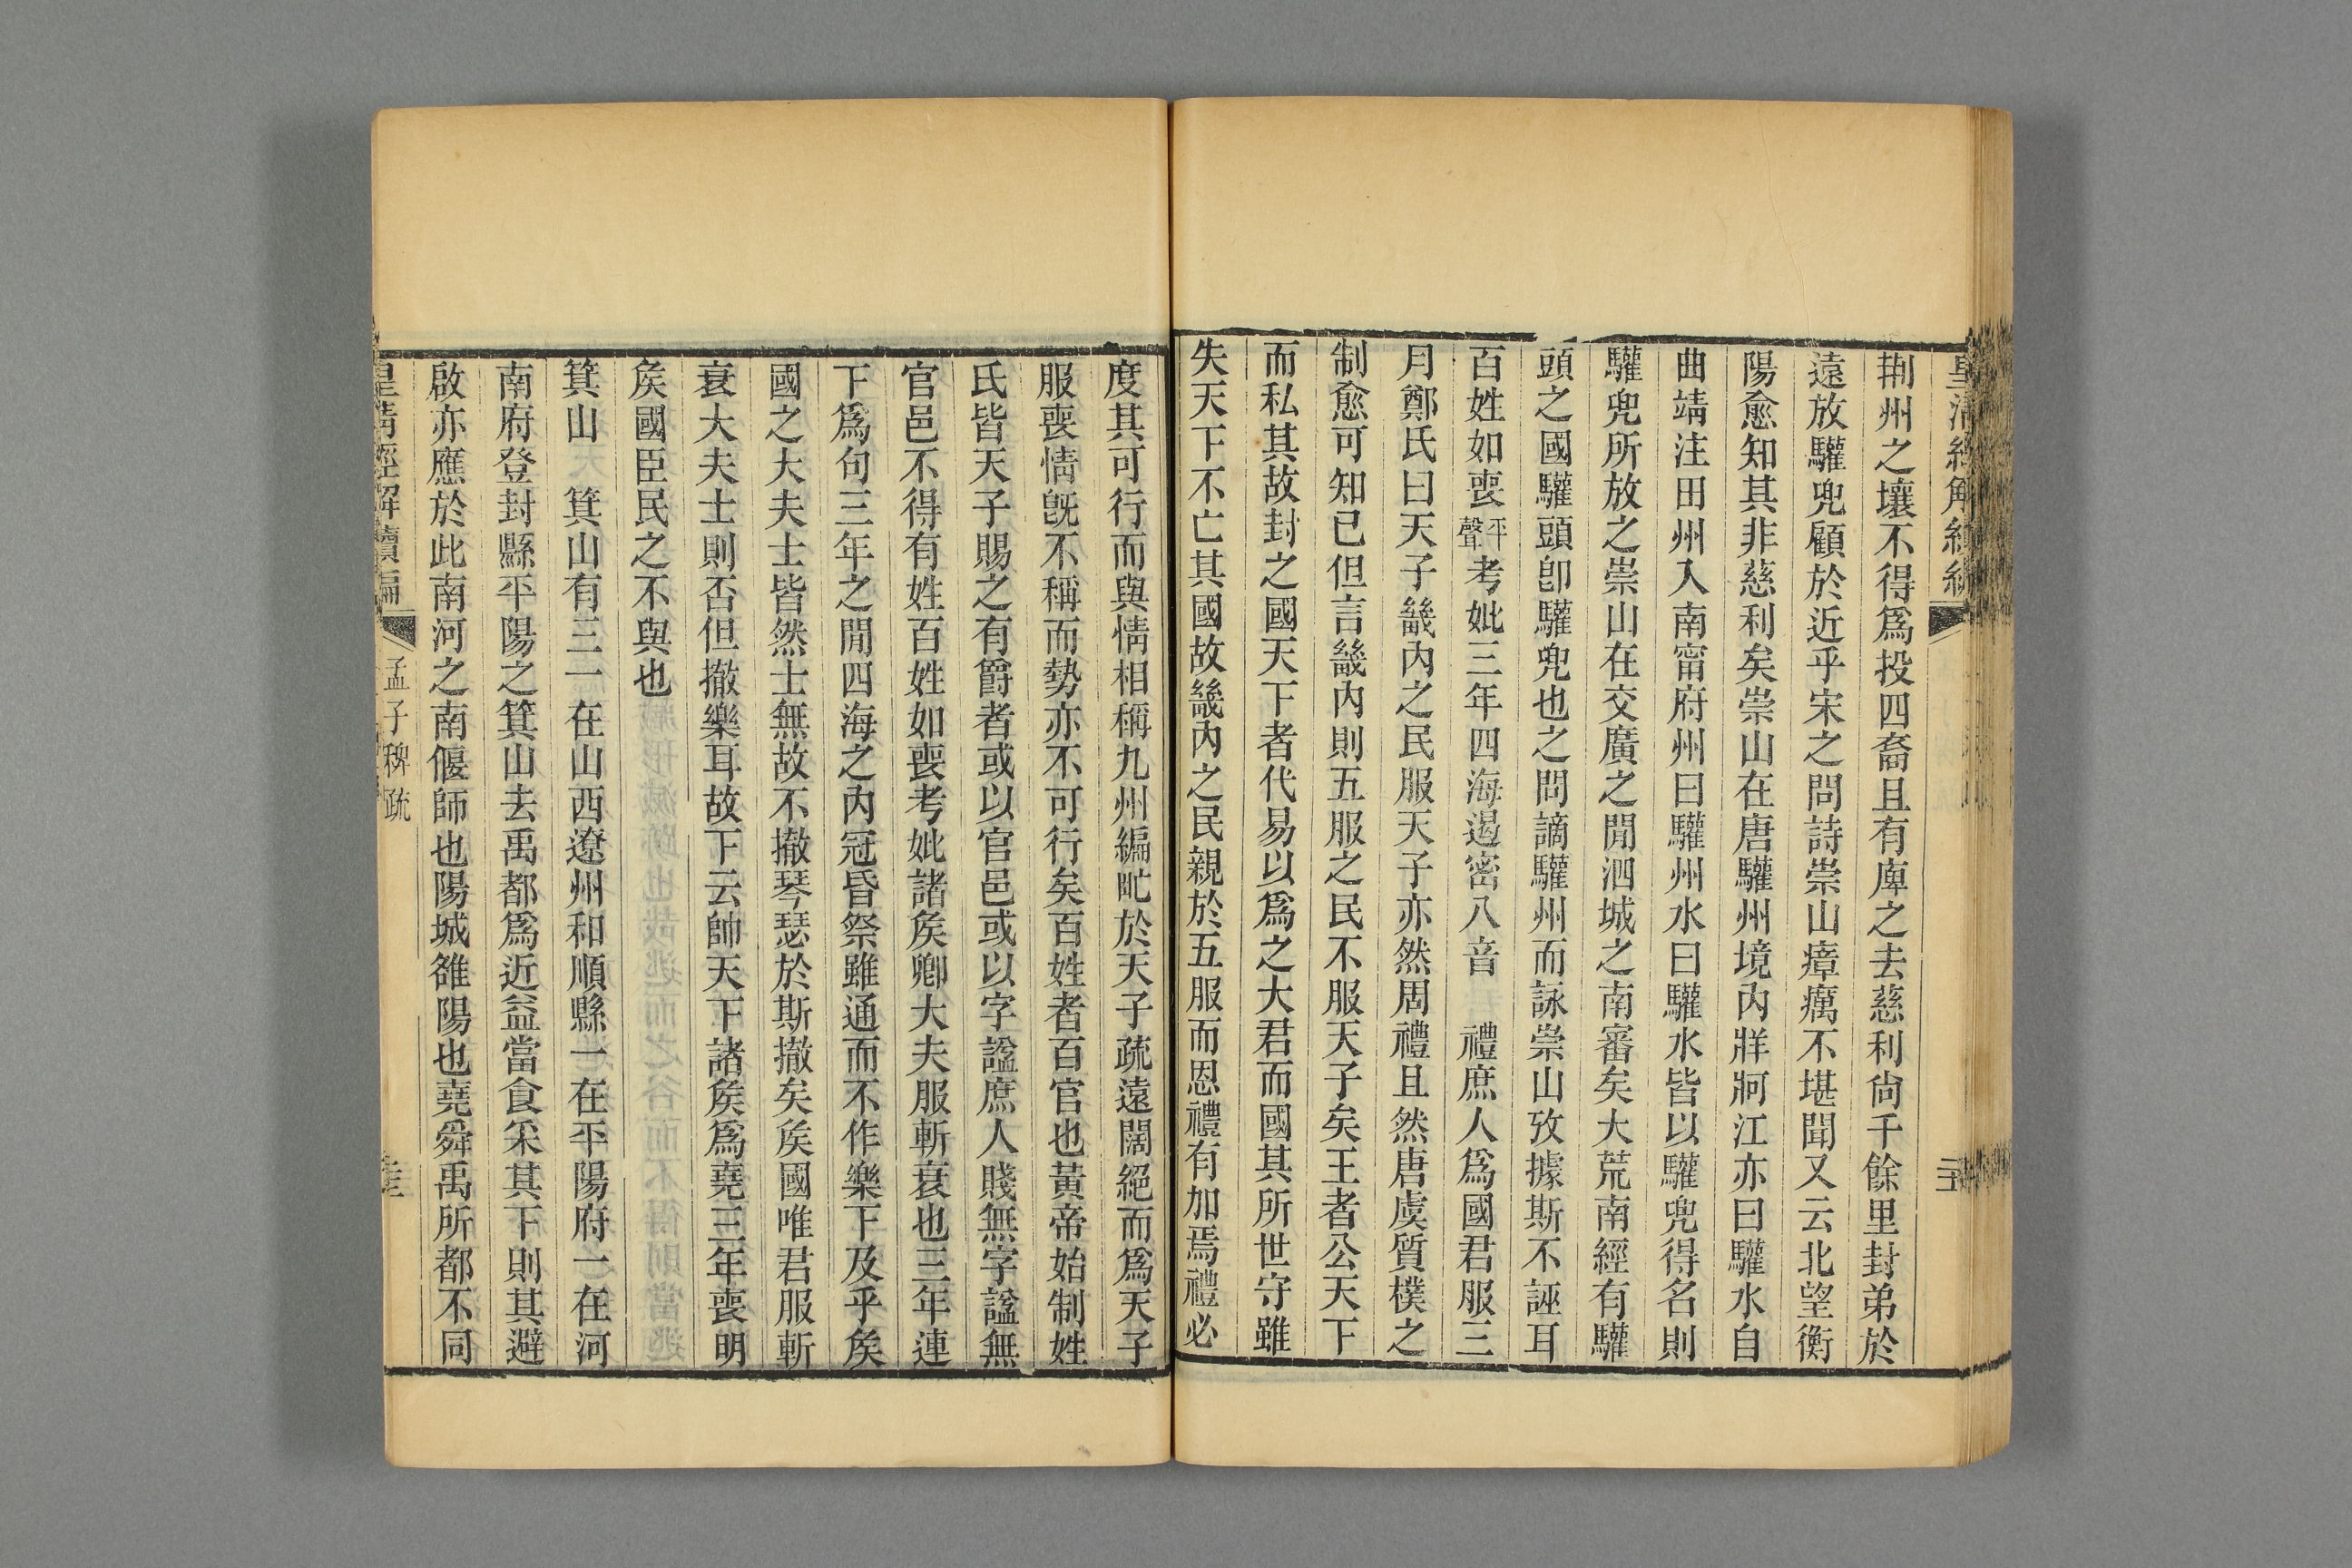 皇清經解續編
荆州之壤不得爲投四裔且有庳之去慈利尙千餘里封弟於
遠放驩兜顧於近乎宋之問詩崇山瘴癘不堪聞又云北望衡
陽愈知其非慈利矣崇山在唐驩州境內牂牁江亦曰驩水自
曲靖注田州入南甯府州曰驩州水曰驩水皆以驩兜得名則
驩兜所放之崇山在交廣之閒泗城之南審矣大荒南經有驩
頭之國驩頭卽驩兜也之問謫驩州而詠崇山攷據斯不誣耳
百姓如喪平聲考妣三年四海遏密八音　禮庶人爲國君服三
月鄭氏曰天子畿內之民服天子亦然周禮且然唐虞質樸之
制愈可知已但言畿內則五服之民不服天子矣王者公天下
而私其故封之國天下者代易以爲之大君而國其所世守雖
失天下不亡其國故畿內之民親於五服而恩禮有加焉禮必
度其可行而與情相稱九州編甿於天子疏遠闊絕而爲天子
服喪情旣不稱而勢亦不可行矣百姓者百官也黃帝始制姓
氏皆天子賜之有爵者或以官邑或以字謚庶人賤無字謚無
官邑不得有姓百姓如喪考妣諸矦卿大夫服斬衰也三年連
下爲句三年之閒四海之內冠昏祭雖通而不作樂下及乎矦
國之大夫士皆然士無故不撤琴瑟於斯撤矣矦國唯君服斬
衰大夫士則否但撤樂耳故下云帥天下諸矦爲堯三年喪明
矦國臣民之不與也
箕山　箕山有三一在山西遼州和順縣一在平陽府一在河
南府登封縣平陽之箕山去禹都爲近益當食采其下則其避
啟亦應於此南河之南偃師也陽城雒陽也堯舜禹所都不同
皇清經解續編
孟子稗疏